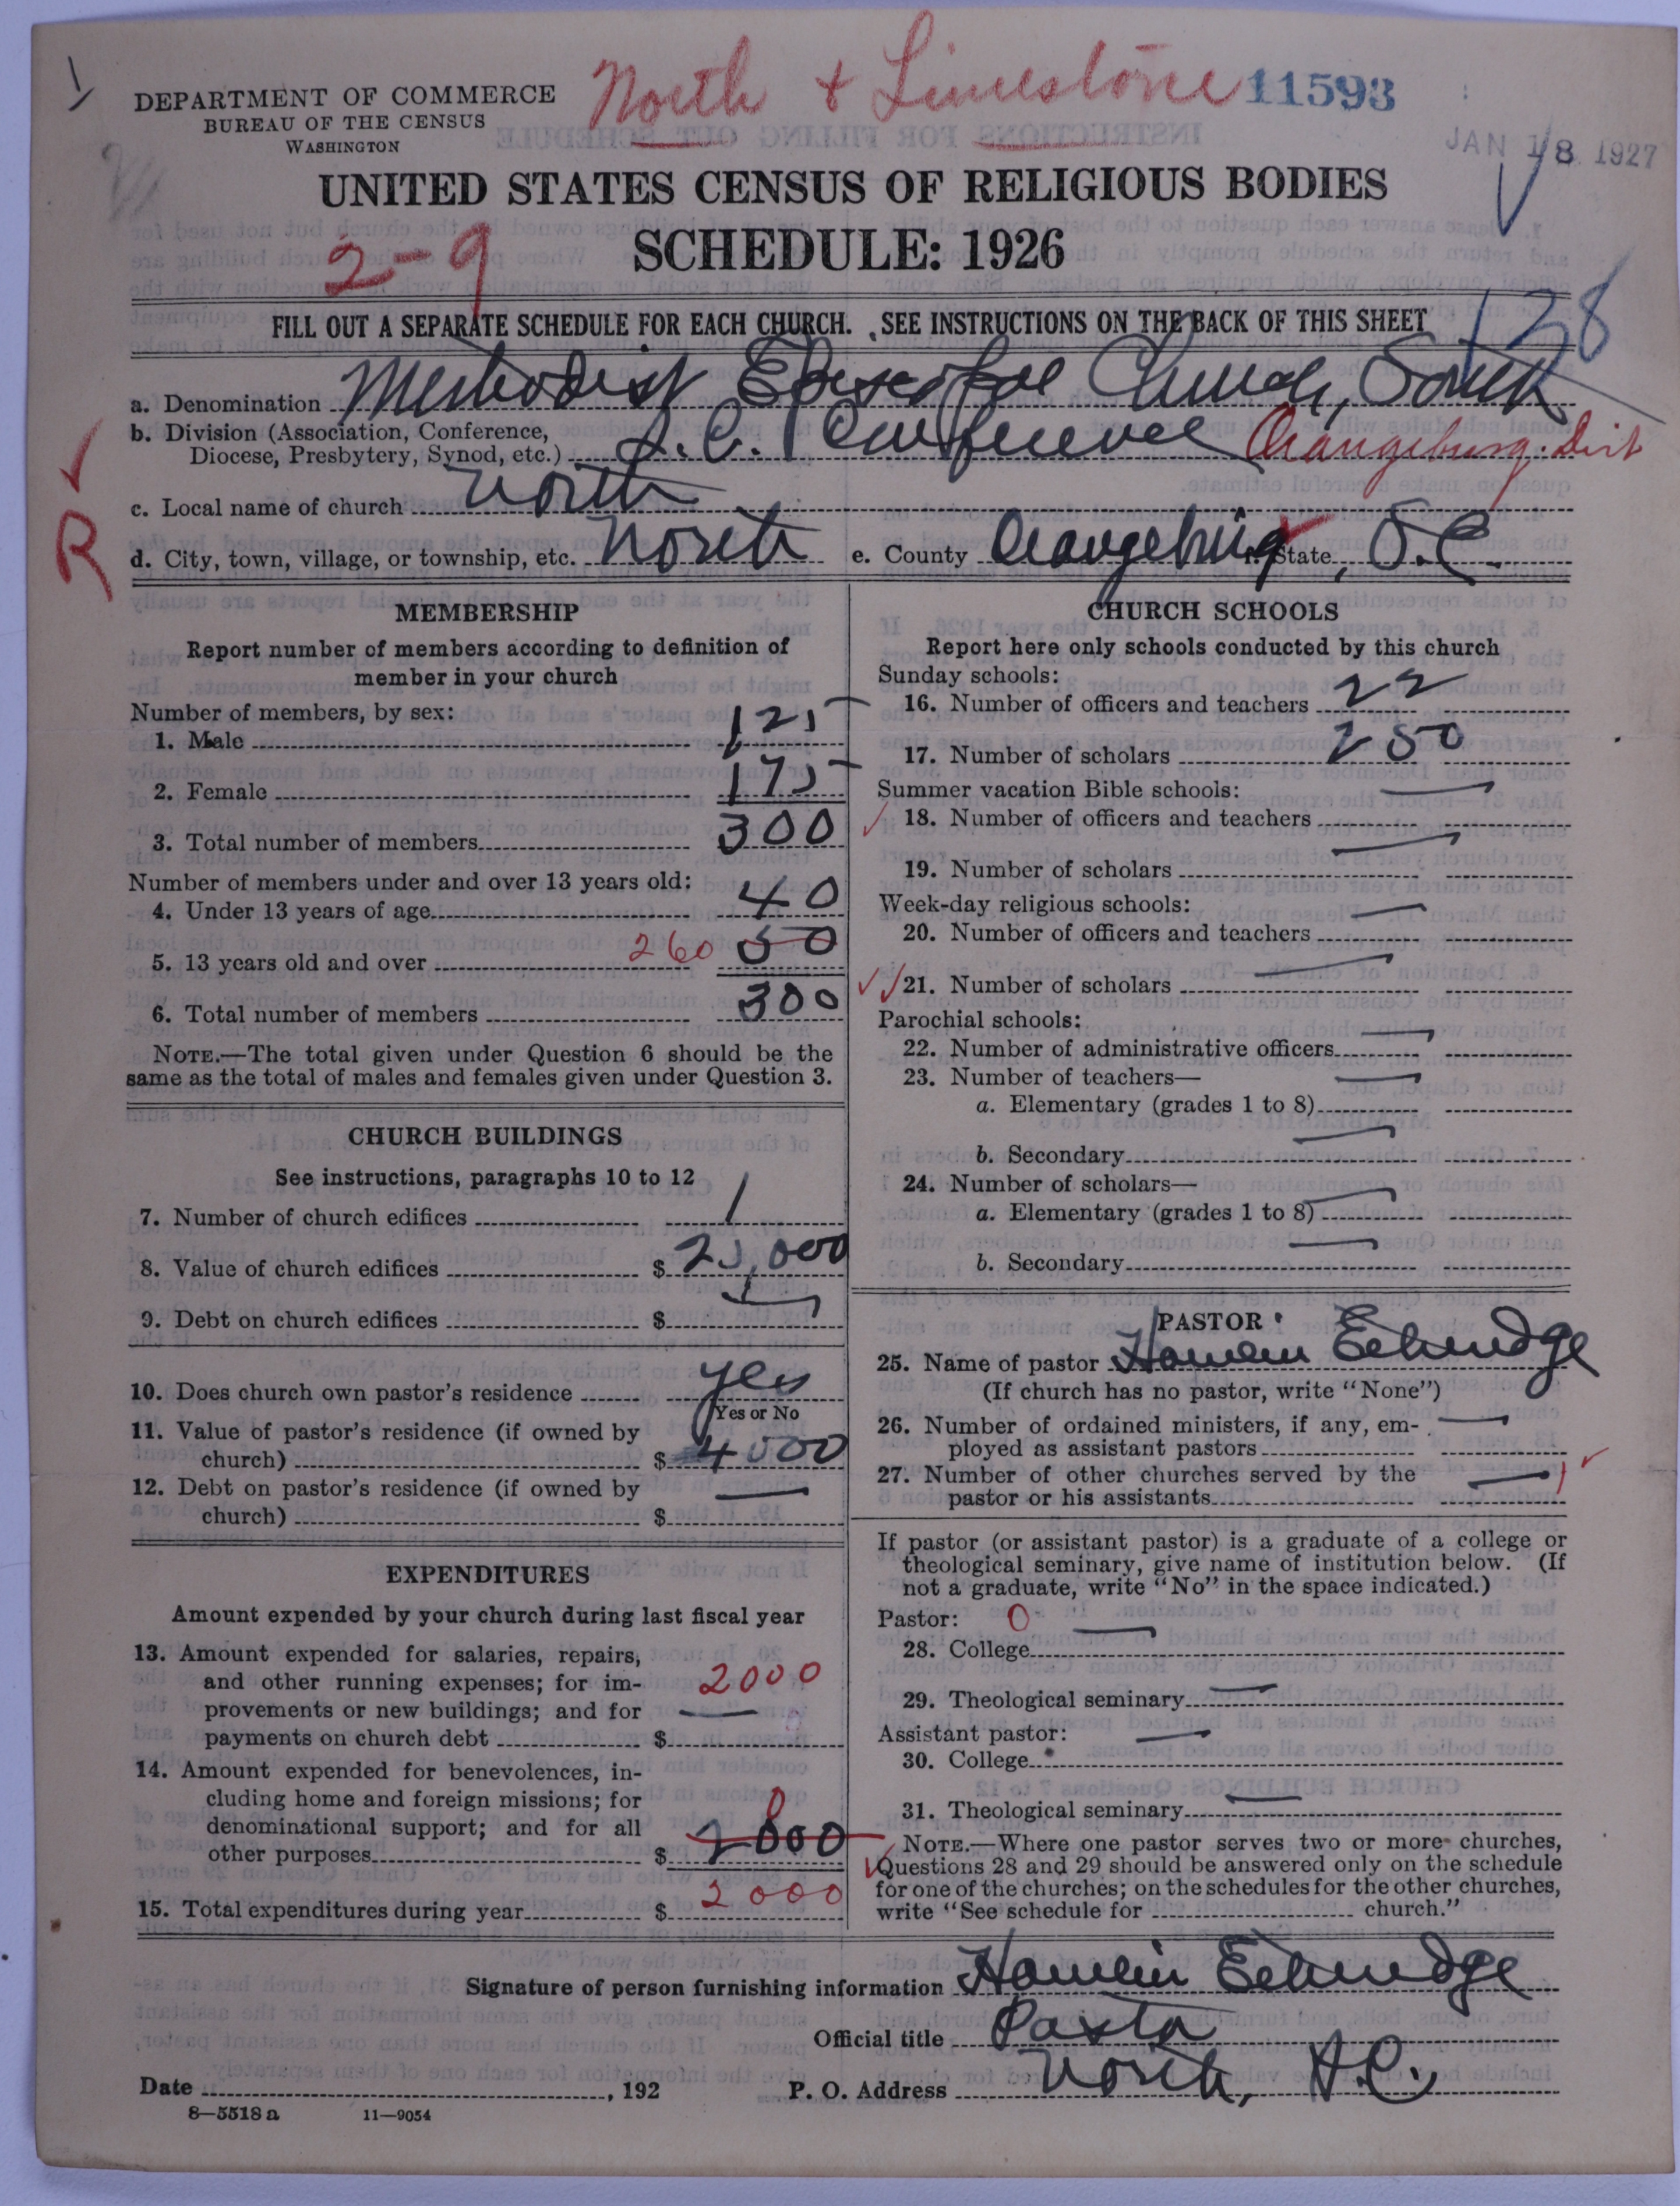 North & Limestone 11593
DEPARTMENT OF COMMERCE
BUREAU OF THE CENSUS
WASHINGTON
JAN 18 1927
UNITED STATES CENSUS OF RELIGIOUS BODIES
SCHEDULE: 1926
2-9
138
FILL OUT A SEPARATE SCHEDULE FOR EACH CHURCH. SEE INSTRUCTIONS ON THE BACK OF THIS SHEET
a. Denomination Methodist Episcopal Church, South
b. Division (Association, Conference,
Diocese, Presbytery, Synod, etc.) S.C. Conference Orangeburg. Dist
R
c. Local name of church North
d. City, town, village, or township, etc. North e. County Orangeburg f. State, S.C.
MEMBERSHIP
Report number of members according to definition of
member in your church
Number of members, by sex:
1. Male 125
2. Female 175
3. Total number of members 300
Number of members under and over 13 years old:
4. Under 13 years of age 40
5. 13 years old and over 260 50
6. Total number of members 300
NOTE.—The total given under Question 6 should be the
same as the total of males and females given under Question 3.
CHURCH BUILDINGS
See instructions, paragraphs 10 to 12
7. Number of church edifices 1
8. Value of church edifices $ 25,000
9. Debt on church edifices $
10. Does church own pastor's residence yes
Yes or No
11. Value of pastor's residence (if owned by
church) $ 4000
12. Debt on pastor's residence (if owned by
church) $ —
EXPENDITURES
Amount expended by your church during last fiscal year
13. Amount expended for salaries, repairs,
and other running expenses; for im-
provements or new buildings; and for
payments on church debt $ 2000 —
14. Amount expended for benevolences, in-
cluding home and foreign missions; for
denominational support; and for all
other purposes $ 2000
15. Total expenditures during year $ 2000
CHURCH SCHOOLS
Report here only schools conducted by this church
Sunday schools:
16. Number of officers and teachers 22
17. Number of scholars 250
Summer vacation Bible schools:
18. Number of officers and teachers —
19. Number of scholars —
Week-day religious schools:
20. Number of officers and teachers —
21. Number of scholars —
Parochial schools:
22. Number of administrative officers —
23. Number of teachers—
a. Elementary (grades 1 to 8) —
b. Secondary —
24. Number of scholars—
a. Elementary (grades 1 to 8) —
b. Secondary —
PASTOR
25. Name of pastor Hamlin Etheredge
(If church has no pastor, write "None")
26. Number of ordained ministers, if any, em-
ployed as assistant pastors —
27. Number of other churches served by the
pastor or his assistants — 1
If pastor (or assistant pastor) is a graduate of a college or
theological seminary, give name of institution below. (If
not a graduate, write "No" in the space indicated.)
Pastor: 0
28. College —
29. Theological seminary —
Assistant pastor:
30. College —
31. Theological seminary —
NOTE.—Where one pastor serves two or more churches,
Questions 28 and 29 should be answered only on the schedule
for one of the churches; on the schedules for the other churches,
write "See schedule for church."
Signature of person furnishing information Hamlin Etheredge
Official title Pastor
Date , 192 P. O. Address North, S.C.
8—5518 a 11—9054